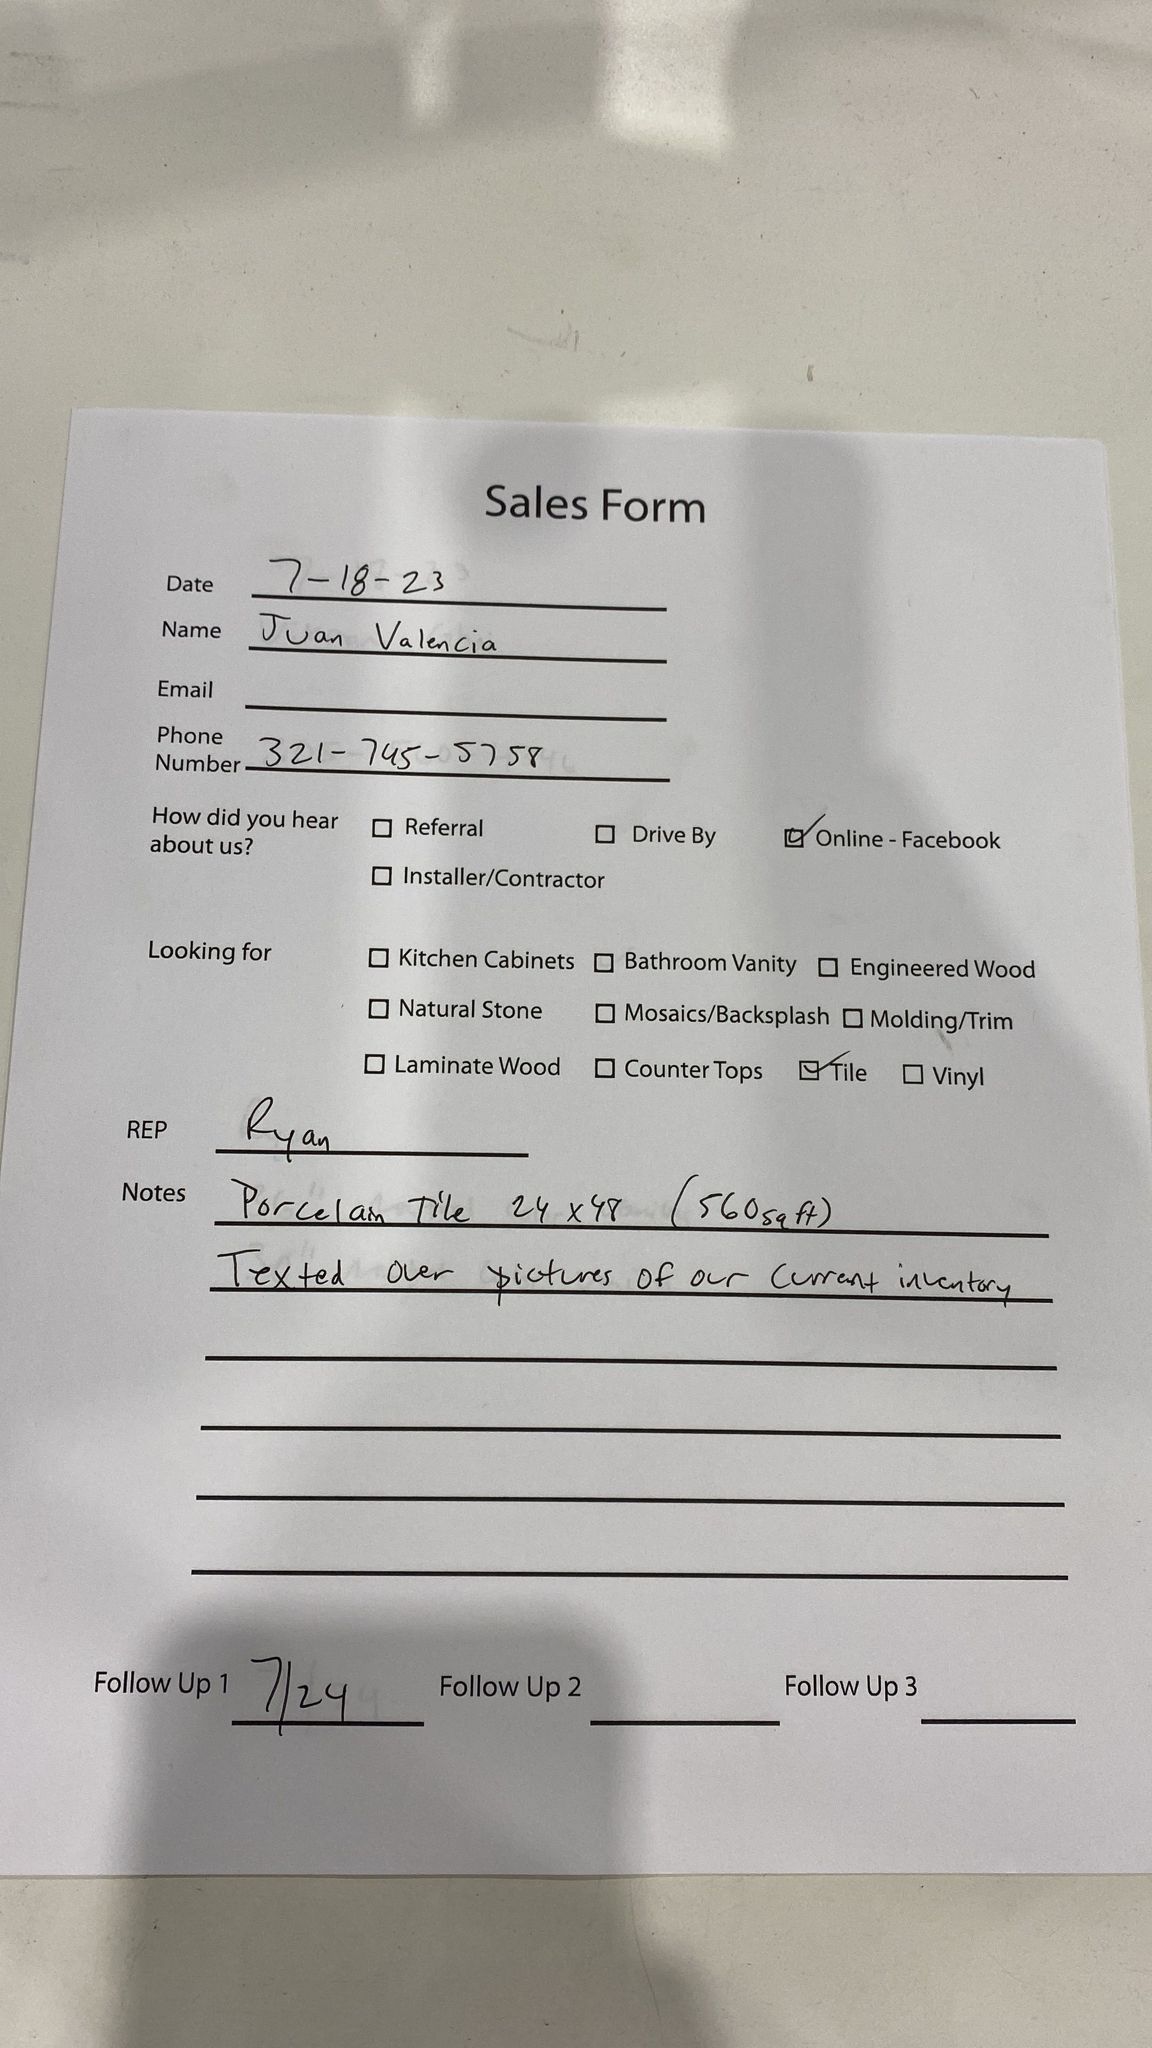 Sales Form
Date 7-18-23
Name Juan Valencia
Email
Phone
Number 321-745-5758
How did you hear
about us?
☐ Referral ☐ Drive By ☑ Online - Facebook
☐ Installer/Contractor
Looking for ☐ Kitchen Cabinets ☐ Bathroom Vanity ☐ Engineered Wood
☐ Natural Stone ☐ Mosaics/Backsplash ☐ Molding/Trim
☐ Laminate Wood ☐ Counter Tops ☑ Tile ☐ Vinyl
REP Ryan
Notes Porcelain Tile 24 x 48 (560 sqft)
Texted over pictures of our current inventory
Follow Up 1 7/24 Follow Up 2 Follow Up 3